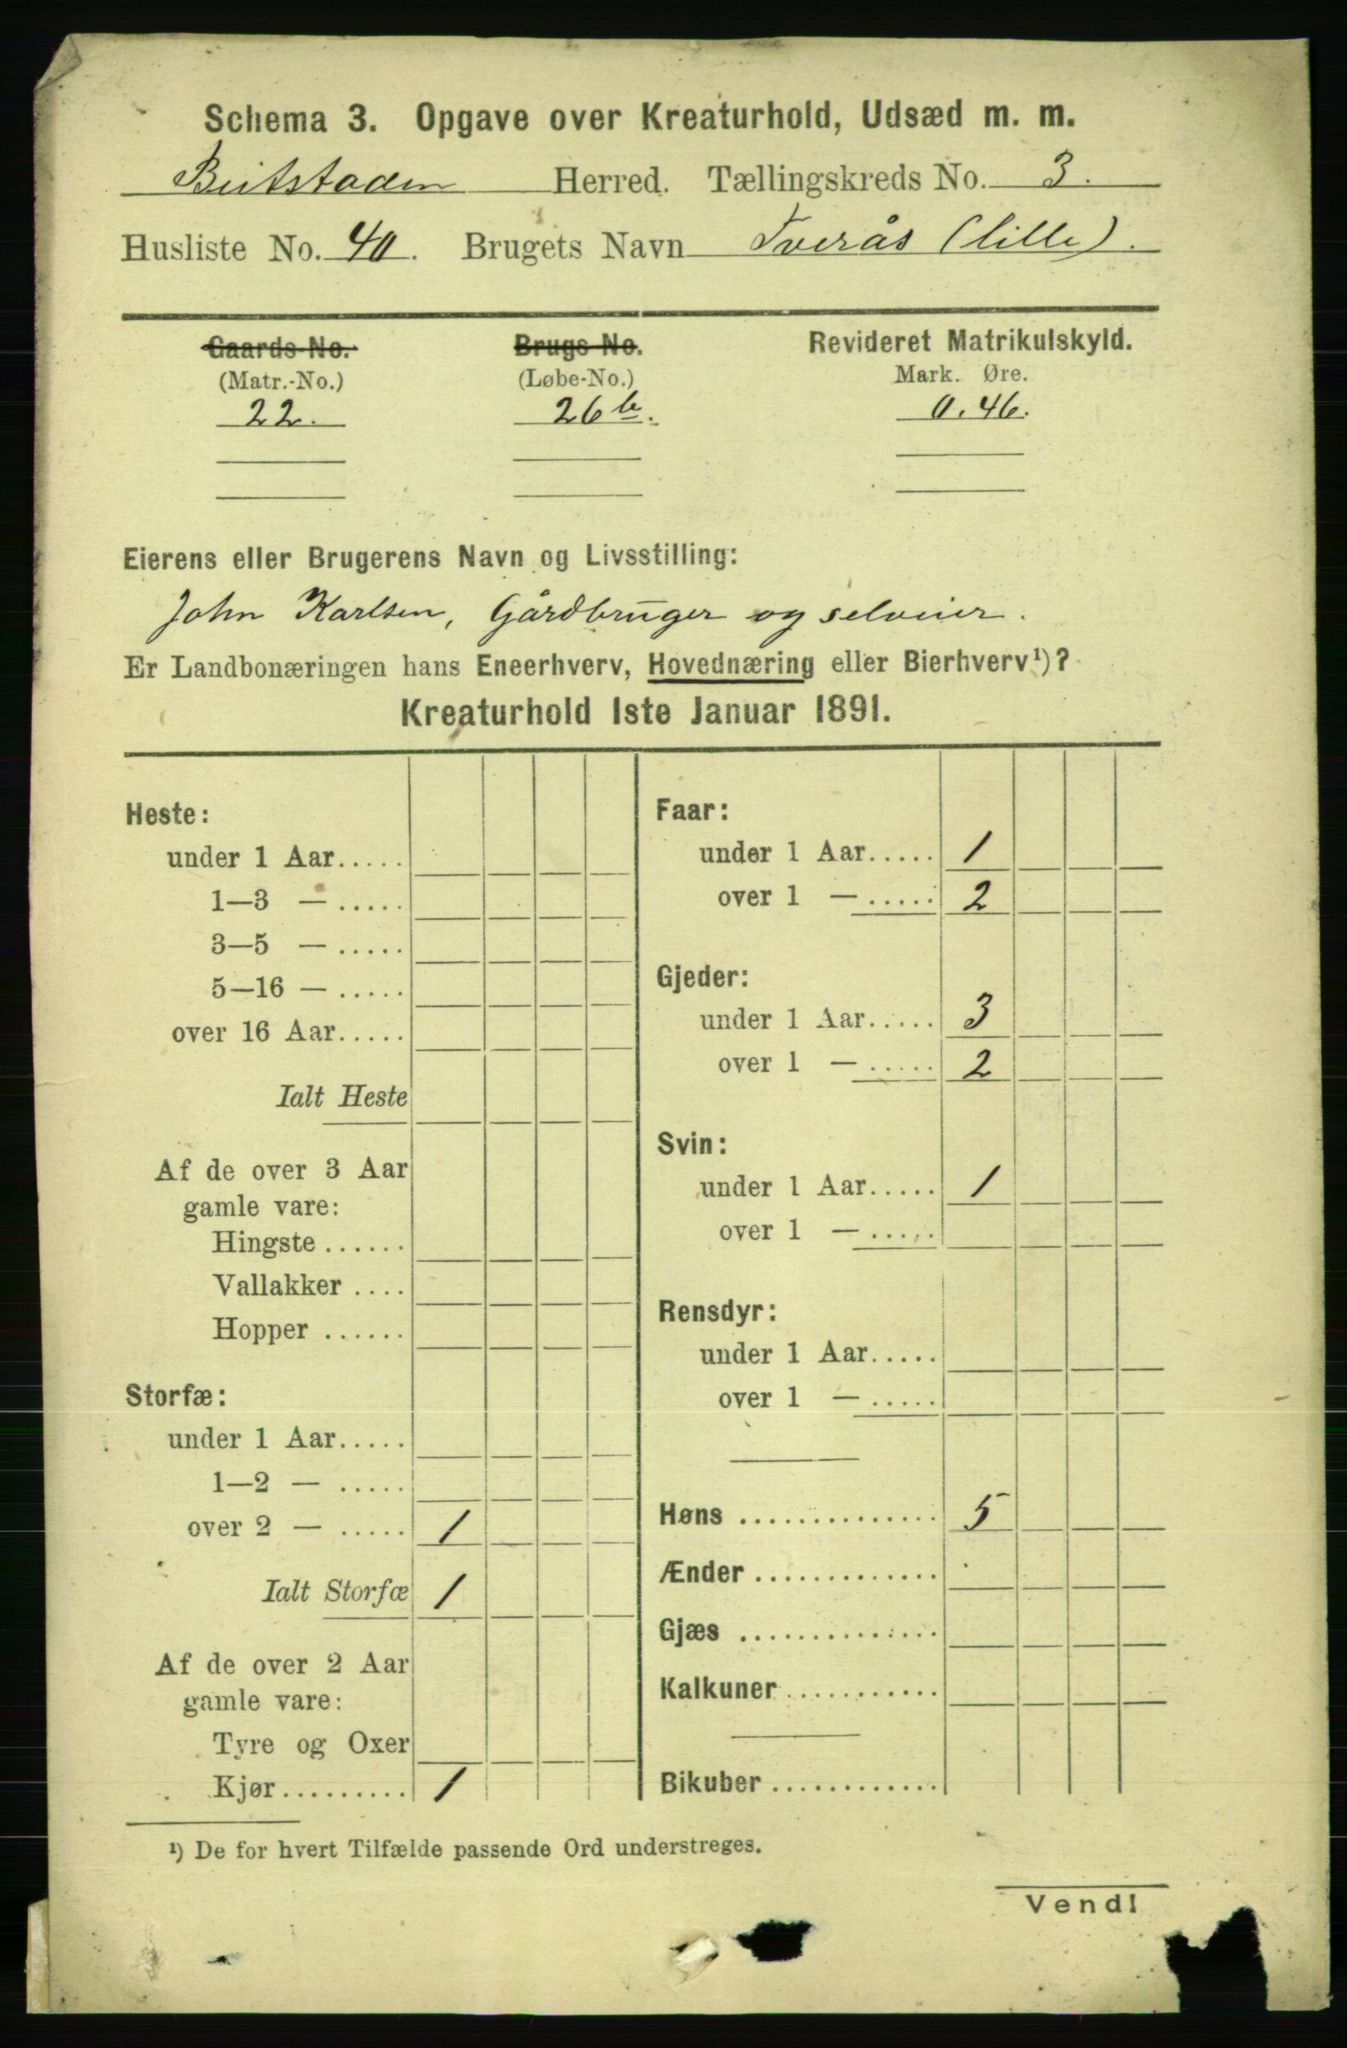 Schema 3. Opgave over Kreaturhold, Udsæd m. m.
Beitstaden Herred. Tællingskreds No. 3.
Husliste No. 40. Brugets Navn Tverås (lille).
Gaards No. Brugs No. Revideret Matrikulskyld.
(Matr.-No.) (Løbe-No.) Mark. Øre.
22. 26 b. 0.46.
Eierens eller Brugerens Navn og Livsstilling:
John Karlsen, Gårdbruger og selveier.
Er Landbonæringen hans Eneerhverv, Hovednæring eller Bierhverv¹)?
Kreaturhold 1ste Januar 1891.
Heste:
under 1 Aar.....
1—3 — .....
3—5 — .....
5—16 — .....
over 16 Aar.....
Ialt Heste
Af de over 3 Aar
gamle vare:
Hingste ......
Vallakker ....
Hopper ......
Storfæ:
under 1 Aar.....
1—2 — .....
over 2 — ..... 1
Ialt Storfæ 1
Af de over 2 Aar
gamle vare:
Tyre og Oxer
Kjør......... 1
Faar:
under 1 Aar..... 1
over 1 — ..... 2
Gjeder:
under 1 Aar..... 3
over 1 — ..... 2
Svin:
under 1 Aar..... 1
over 1 — .....
Rensdyr:
under 1 Aar.....
over 1 — .....
Høns .............. 5
Ænder .............
Gjæs ..............
Kalkuner ...........
Bikuber .............
¹) De for hvert Tilfælde passende Ord understreges.
Vend!